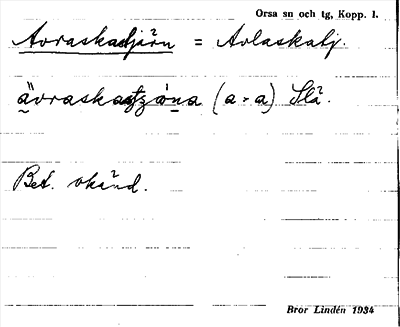 Orsa sn och tg, Kopp. l.
Avraskatjärn = Avlaskatj.
ävraska (a-a) Slä.
Bet. okänd.
Bror Lindén 1934